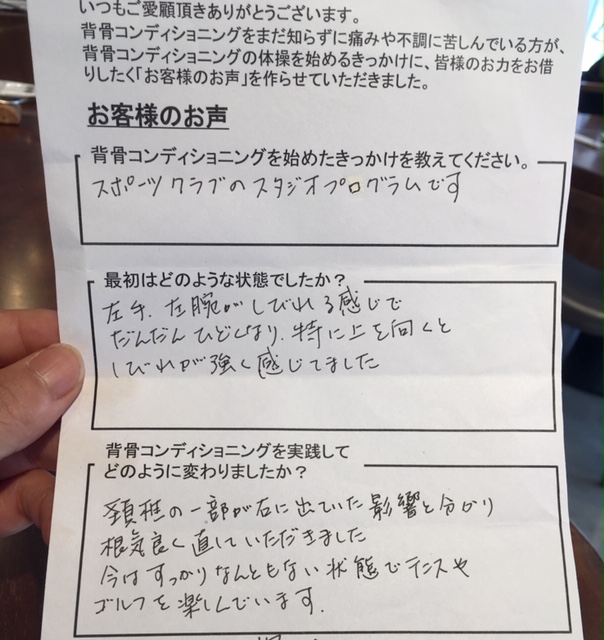 いつもご愛顧頂きありがとうございます。
背骨コンディショニングをまだ知らずに痛みや不調に苦しんでいる方が、
背骨コンディショニングの体操を始めるきっかけに、皆様のお力をお借
りしたく「お客様のお声」を作らせていただきました。
お客様のお声
背骨コンディショニングを始めたきっかけを教えてください。
スポーツクラブのスタジオプログラムです
最初はどのような状態でしたか？
左手、左腕がしびれる感じで
だんだんひどくなり、特に上を向くと
しびれが強く感じてました
背骨コンディショニングを実践して
どのように変わりましたか？
頚椎の一部が右に出ていた影響と分かり
根気良く直していただきました
今はすっかりなんともない状態でテニスや
ゴルフを楽しんでいます.